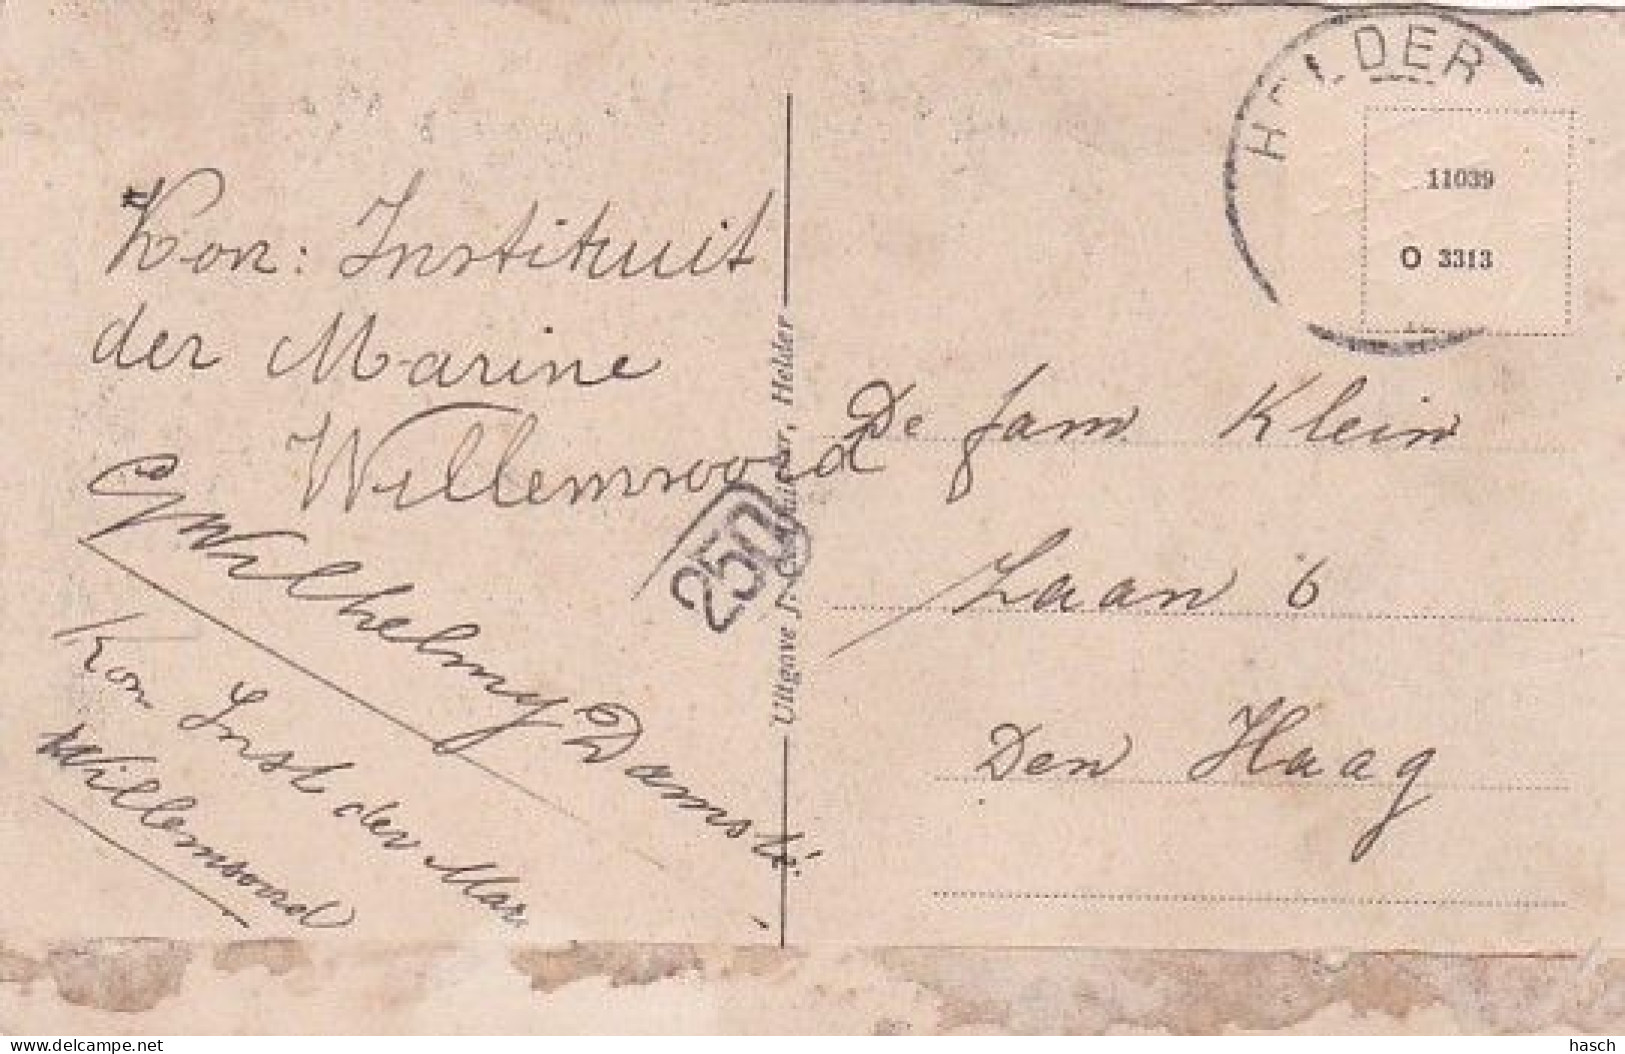 HELDER
11039
O 3313
Kon: Instituit
der Marine
Willemsoord
G Wilhelmy Damsté.
Kon Inst der Mar.
Willemsoord
250
Uitgave J.
Helder
De fam Klein
Laan 6
Den Haag
delcampe.net
hasch